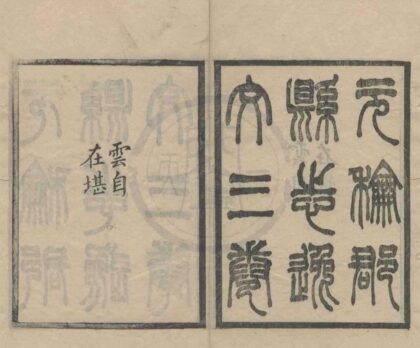 元和郡
縣志逸
文三卷
雲自
在堪